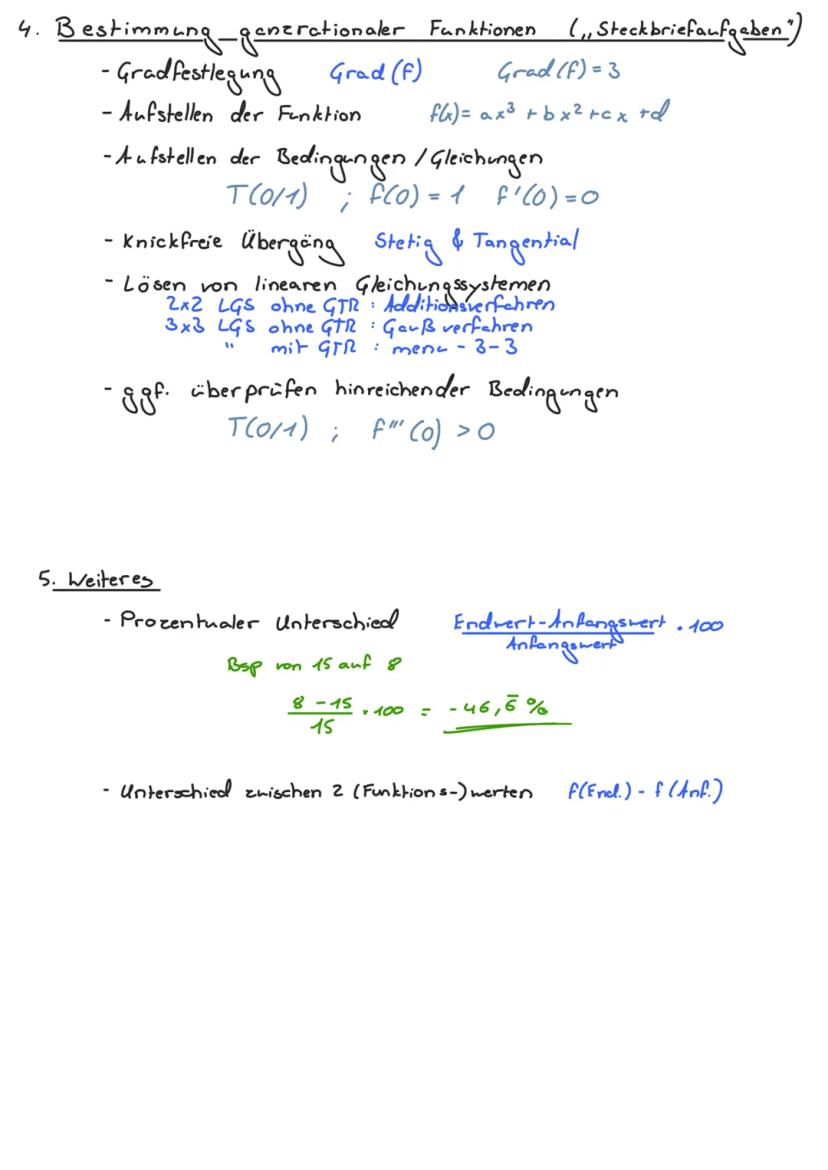 4. Bestimmung ganzrationaler Funktionen („Steckbriefaufgaben")
- Gradfestlegung Grad(f) Grad(f) = 3
- Aufstellen der Funktion f(x) = ax³ + bx² + cx + d
- Aufstellen der Bedingungen / Gleichungen
T(0/1) ; f(0) = 1 f'(0) = 0
- Knickfreie Übergäng Stetig & Tangential
- Lösen von linearen Gleichungssystemen
2x2 LGS ohne GTR : Additionsverfahren
3x3 LGS ohne GTR : Gauß verfahren
" mit GTR : menu - 3-3
- ggf. überprüfen hinreichender Bedingungen
T(0/1) ; f'''(0) > 0
5. Weiteres
- Prozentualer Unterschied Endwert-Anfangswert / Anfangswert · 100
Bsp von 15 auf 8
8 - 15 / 15 · 100 = - 46,6̅ %
- Unterschied zwischen 2 (Funktions-)werten f(End.) - f(Anf.)